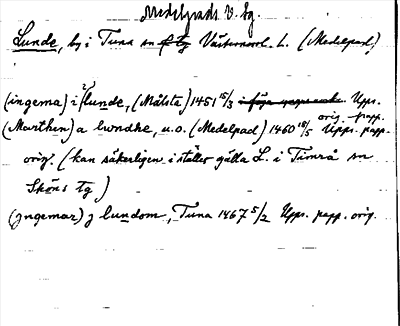 Medelpads V. tg.
Lunde, by i Tuna sn o tg Västernorrl. L. (Medelpad)
(ingema) i lunde, (Målsta) 1451 15/3 Upps.
orig. papp.
(Marthen) a lwndhe, u.o. (Medelpad) 1460 18/5 Upps. papp.
orig. (kan säkerligen i stället gälla L. i Timrå sn
Sköns tg)
(jngemar) j lundom, Tuna 1467 5/2 Upps. papp. orig.